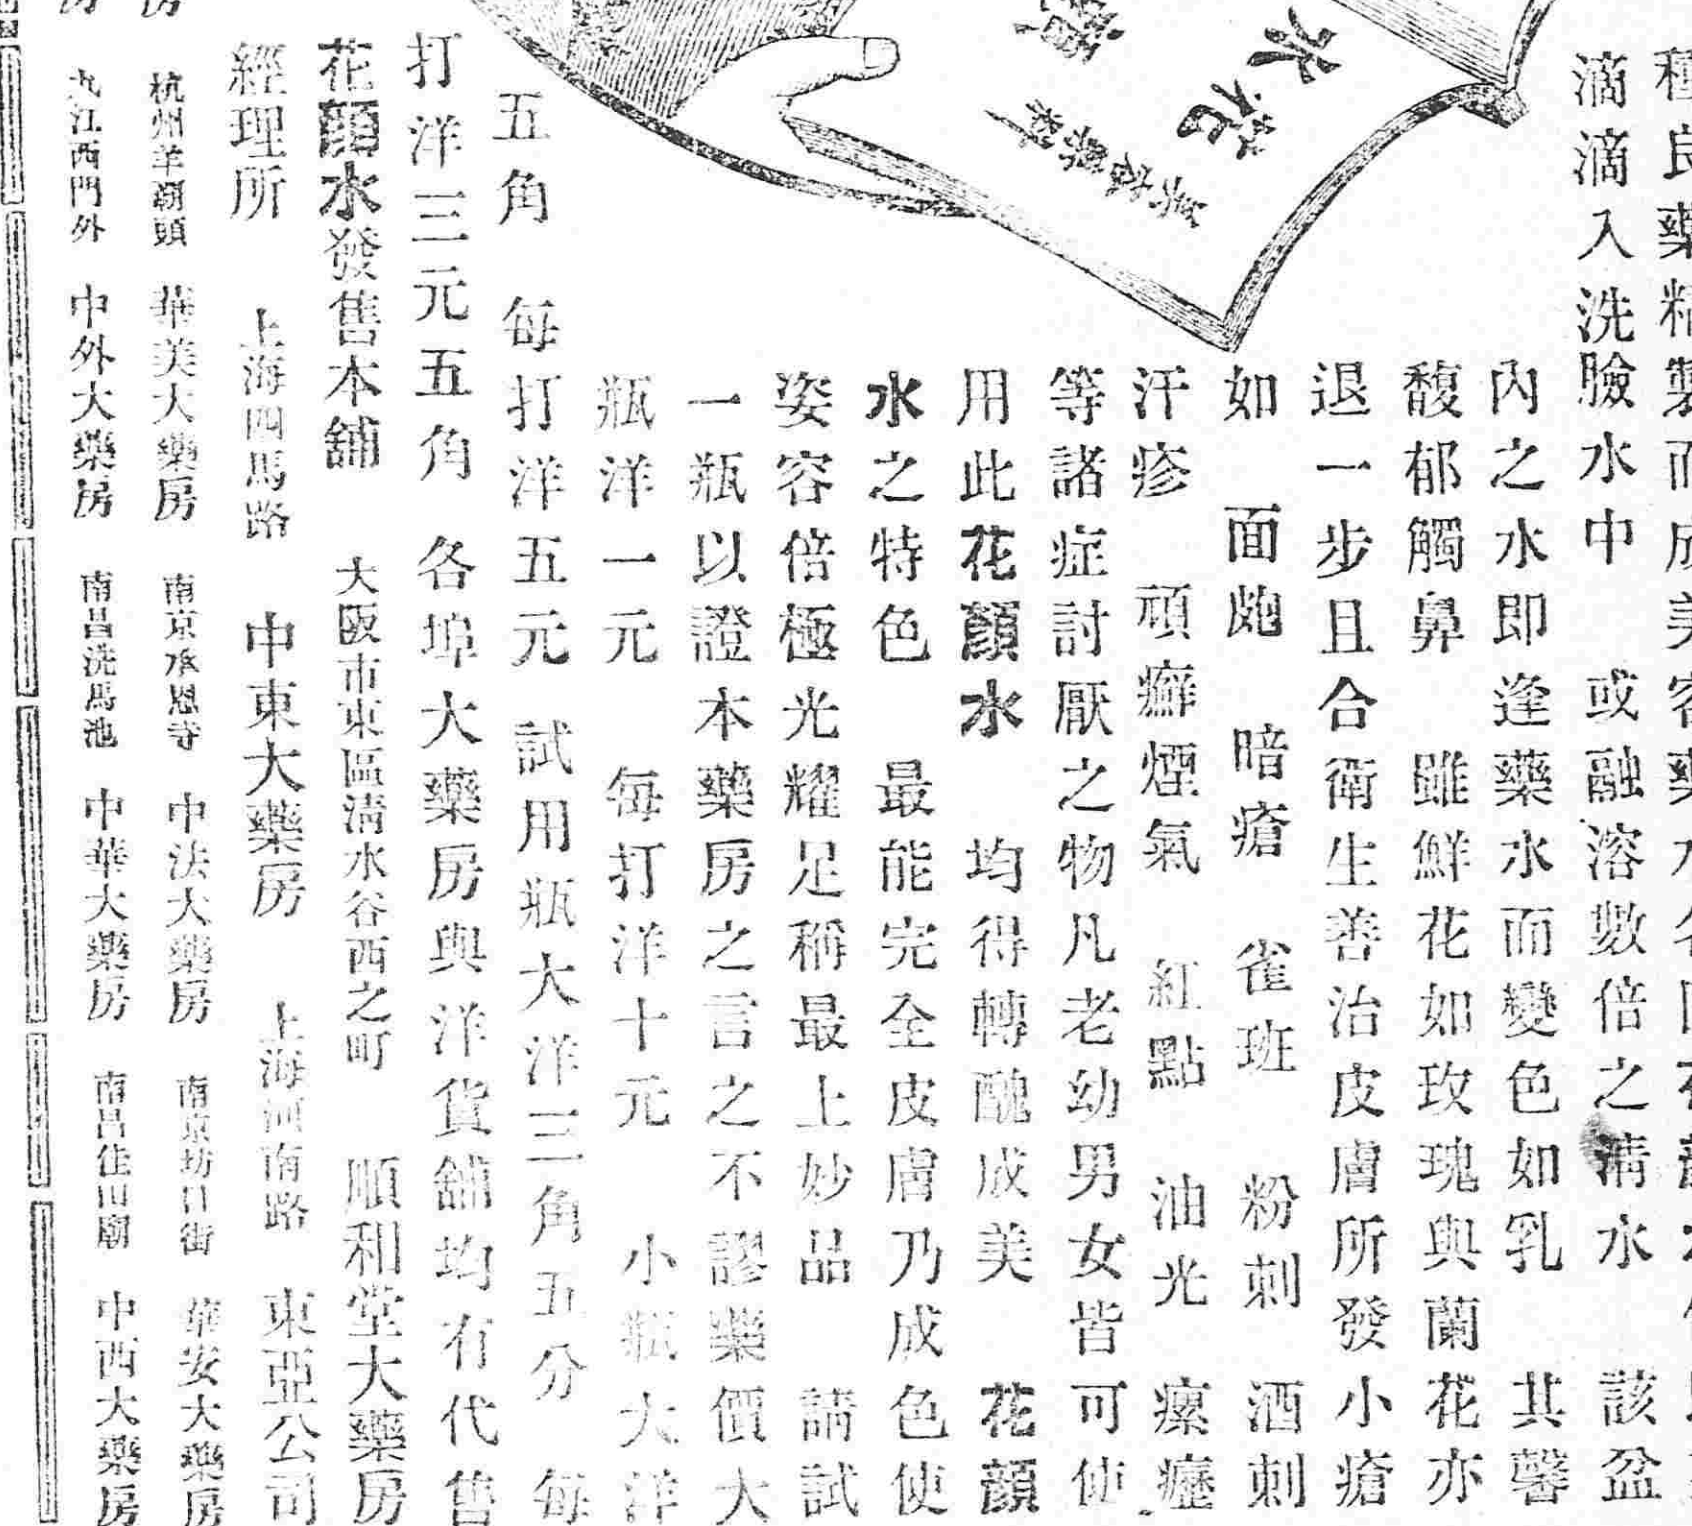 良藥精製而成美容藥水
滴滴入洗臉水中 或融溶數倍之淸水 該盆
內之水即逢藥水而變色如乳 其馨
馥郁觸鼻 雖鮮花如玫瑰與蘭花亦
退一步且合衛生善治皮膚所發小瘡
如 面皰 暗瘡 雀班 粉刺 酒刺
汗疹 頑癬煙氣 紅點 油光 瘰癧
等諸症討厭之物凡老幼男女皆可使
用此花顏水 均得轉醜成美 花顏
水之特色 最能完全皮膚乃成色使
姿容倍極光耀足稱最上妙品 請試
一瓶以證本藥房之言之不謬藥價大
瓶洋一元 每打洋十元 小瓶大洋
五角 每打洋五元 試用瓶大洋三角五分 每
打洋三元五角 各埠大藥房與洋貨舖均有代售
花顏水發售本舖 大阪市東區淸水谷西之町 順和堂大藥房
經理所 上海四馬路 中東大藥房 上海河南路 東亞公司
杭州羊覇頭 華美大藥房 南京承恩寺 中法大藥房 南京坊口街 華安大藥房
九江西門外 中外大藥房 南昌洗馬池 中華大藥房 南昌佳山廟 中西大藥房
水花